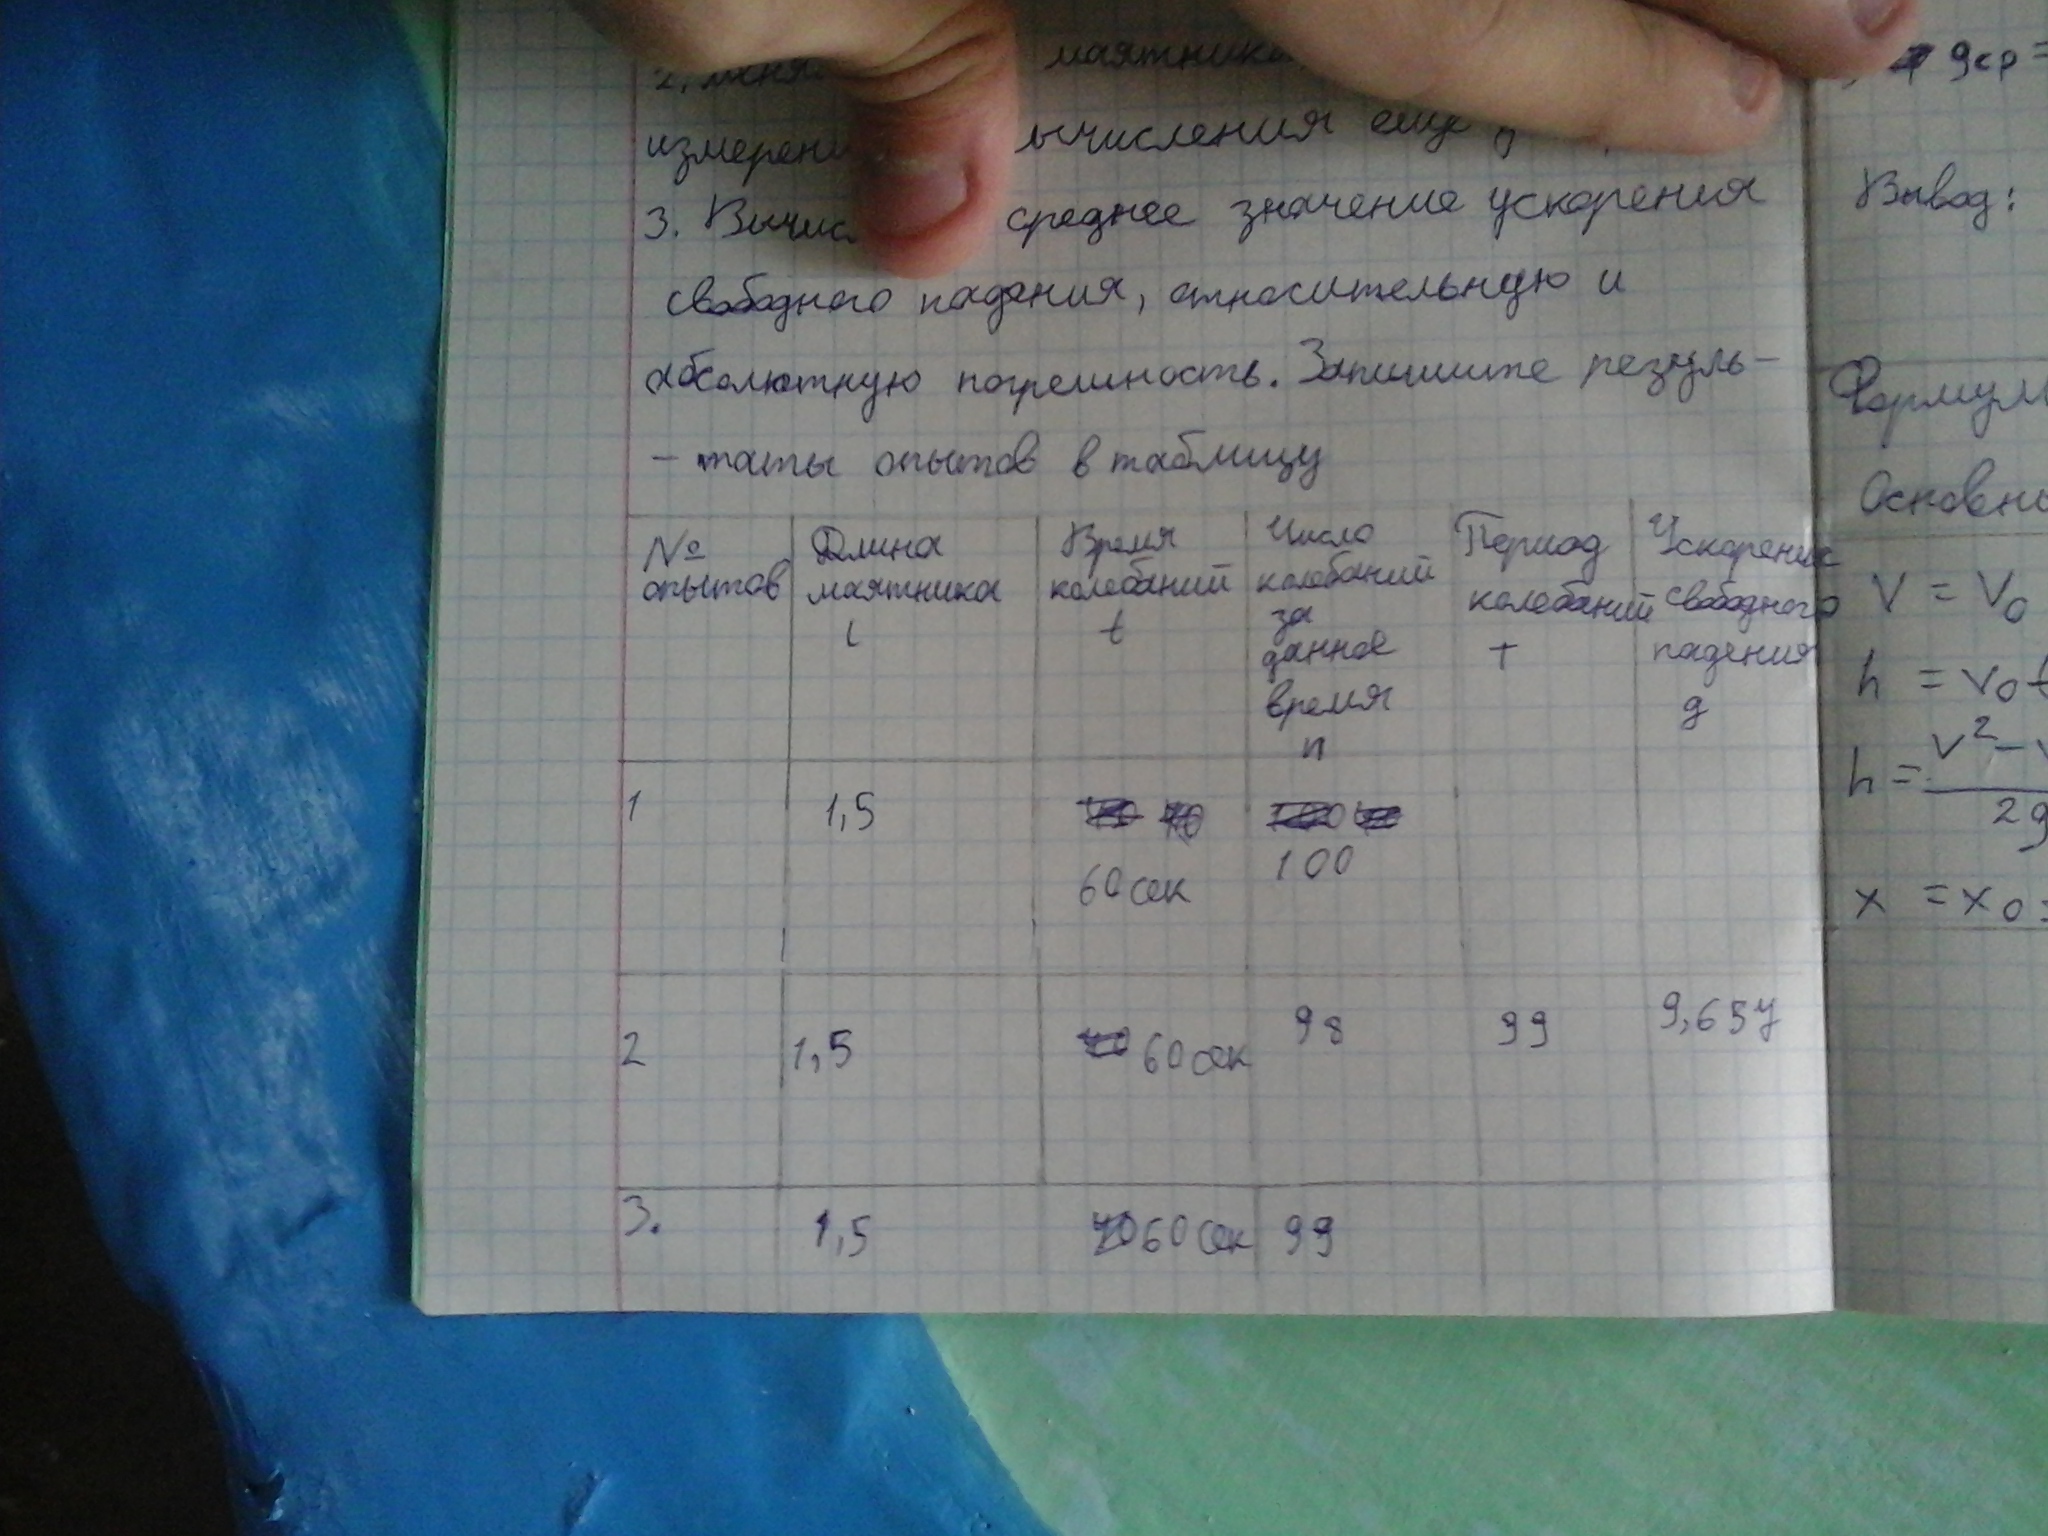 маятника
измерени ычисления еще
3. Вычис среднее значение ускорения
свободного падения, относительную и
абсолютную погрешность. Запишите резуль-
- таты опытов в таблицу
№ опытов
Длина маятника l
Время колебаний t
Число колебаний за данное время n
Период колебаний T
Ускорение свободного падения g
1 1,5 60 сек 100
2 1,5 60 сек 98 99
3. 1,5 60 сек 99
gср =
Вывод:
Формул
Основны
V = V0
h = V0t
h = V² -
2g
x = x0